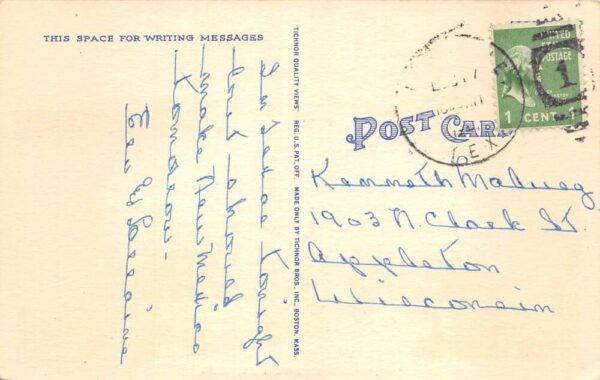 THIS SPACE FOR WRITING MESSAGES
In Texas tonight
but should
make New Mexico
tomorrow –
"TICHNOR QUALITY VIEWS" REG. U.S. PAT. OFF. MADE ONLY BY TICHNOR BROS., INC., BOSTON, MASS.
POST CARD
UNITED
POSTAGE
1 CENT
1
TEX
Kenneth
1903 N. Clark St.
Appleton
Wisconsin